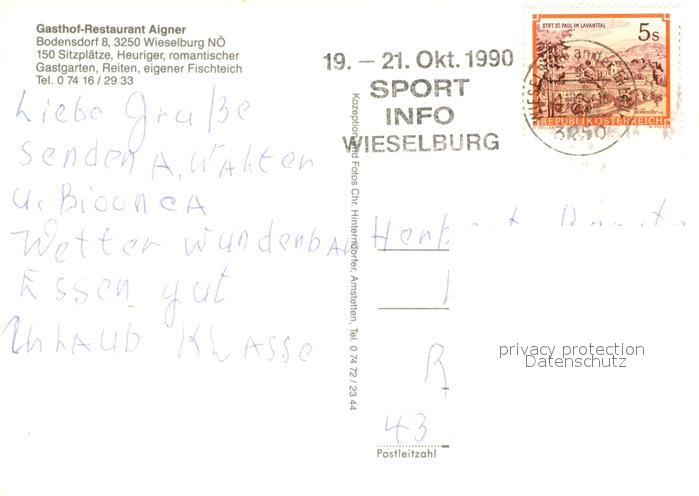 Gasthof-Restaurant Aigner
Bodensdorf 8, 3250 Wieselburg NÖ
150 Sitzplätze, Heuriger, romantischer
Gastgarten, Reiten, eigener Fischteich
Tel. 0 74 16 / 29 33
Liebe Grüße
senden A. Walter
u. Bianca
Wetter wundenbar
Essen gut
Urlaub Klasse
Kozeption und Fotos Chr. Hinterndorfer, Amstetten, Tel. 0 74 72 / 23 44
19. – 21. Okt. 1990
SPORT
INFO
WIESELBURG
STIFT ST. PAUL IM LAVANTTAL
5 S
REPUBLIK ÖSTERREICH
3250
R
43
Postleitzahl
privacy protection
Datenschutz